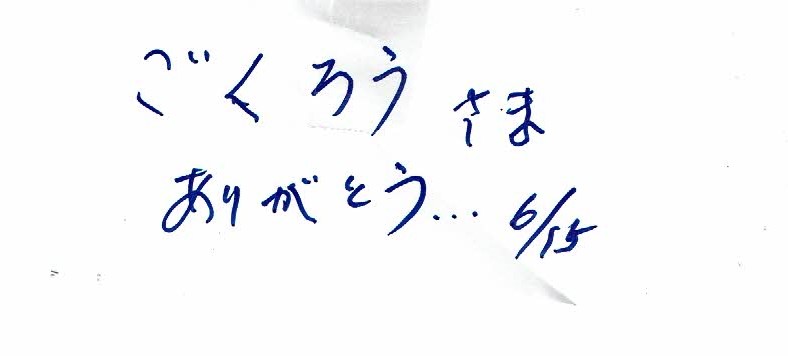 ごくろうさま
ありがとう... 6/15